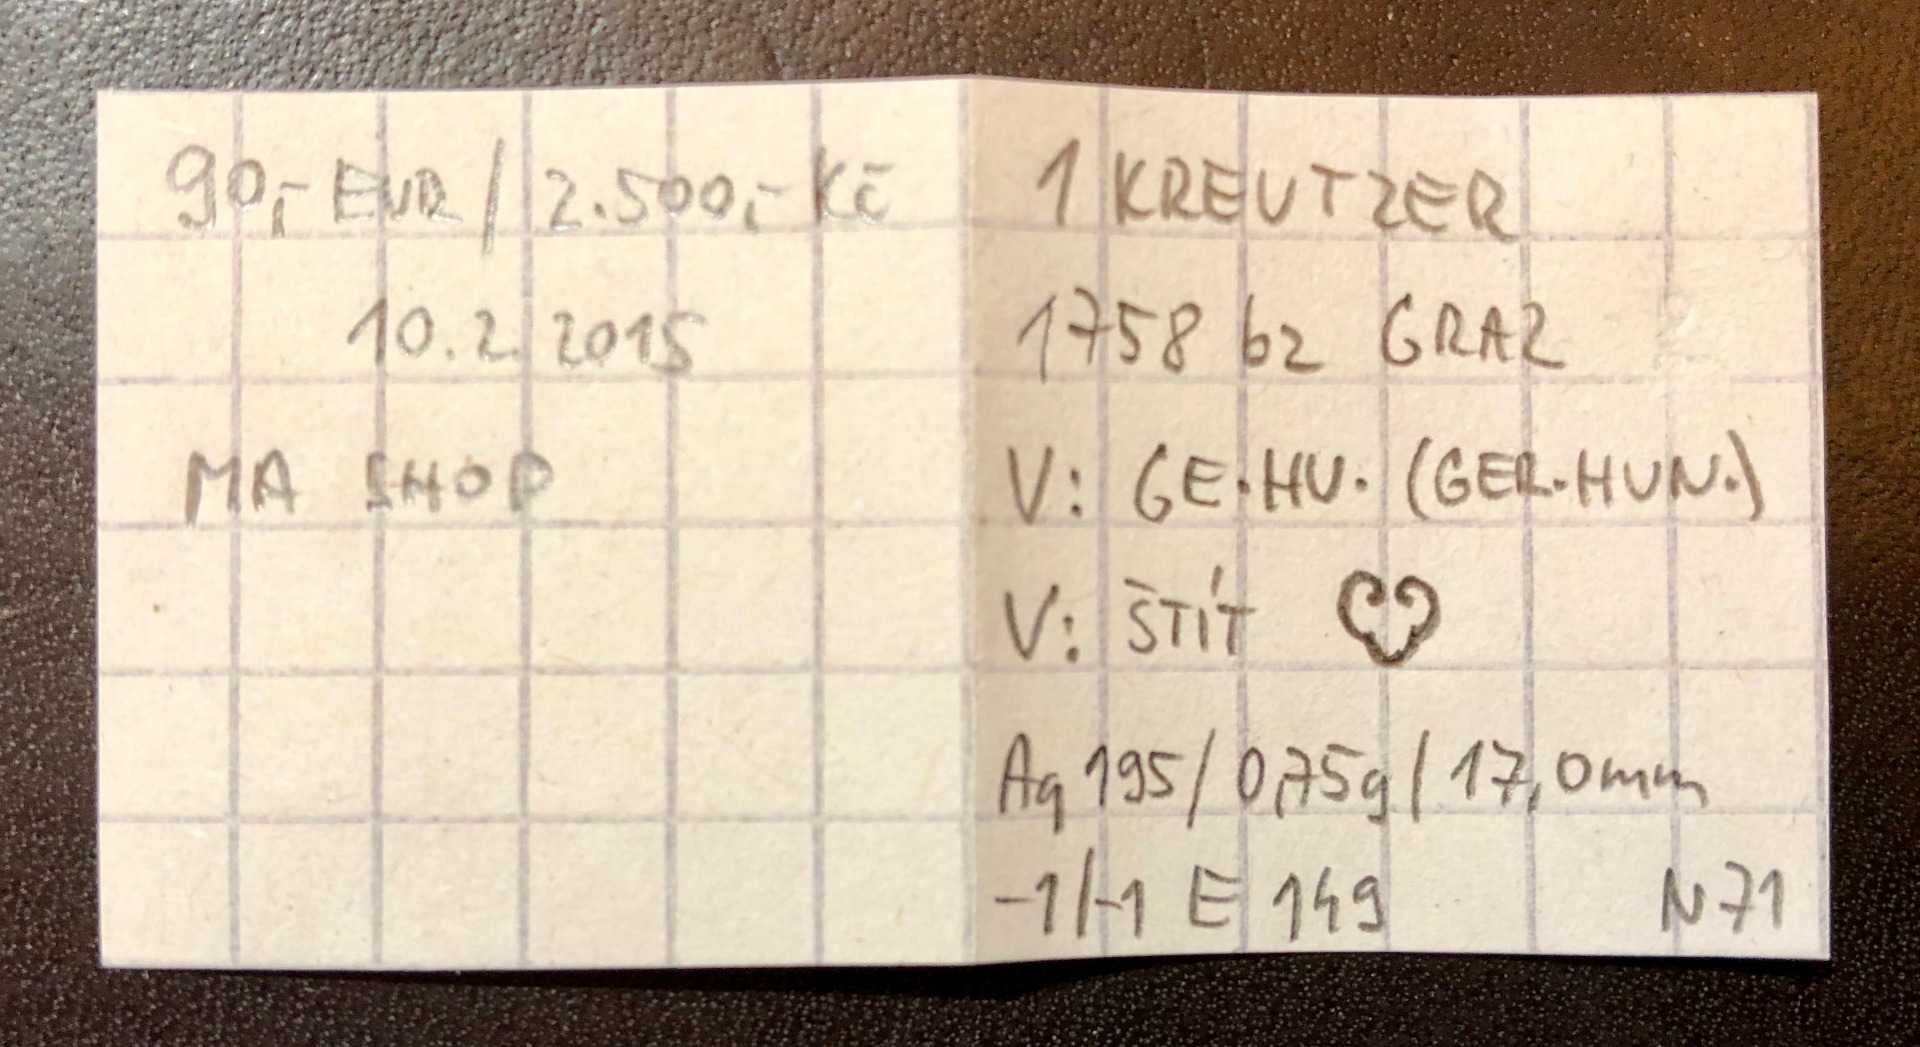 90,- EUR / 2.500,- Kč
10.2.2015
MA SHOP
1 KREUTZER
1758 bz GRAZ
V: GE·HU· (GER·HUN.)
V: ŠTÍT
Ag 195/ 0,75g / 17,0mm
-1/-1 E 149 N71